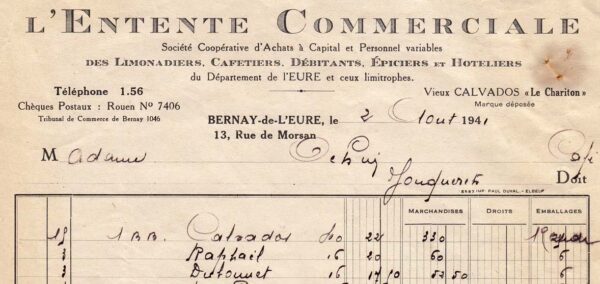 L'ENTENTE COMMERCIALE
Société Coopérative d'Achats à Capital et Personnel variables
DES LIMONADIERS, CAFETIERS, DÉBITANTS, ÉPICIERS ET HOTELIERS
du Département de l'EURE et ceux limitrophes.
Téléphone 1.56
Vieux CALVADOS «Le Chariton»
Marque déposée
Chèques Postaux : Rouen Nº 7406
Tribunal de Commerce de Bernay 1046
BERNAY-de-L'EURE, le 2 Aout 1941
13, Rue de Morsan
Madame
Doit
IMP. PAUL DUVAL.-ELBEUF
MARCHANDISES DROITS EMBALLAGES
15 1 BB Calvados 40 22 330
3 Raphaël 16 20 60 3
3 Dubonnet 16 17 50 52 50 3